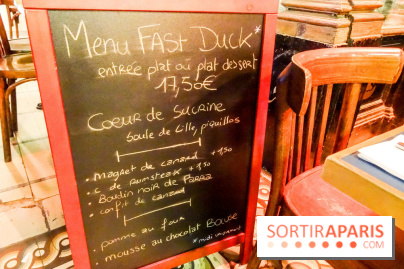 Menu FAST DUCK*
entrée plat où plat dessert
17,50€
Coeur de Sucrine
boule de Lille, piquillos
• magret de canard +1,50
• C de rumsteak +1,50
• Boudin noir de PARRA
• confit de canard
• pomme au four
• mousse au chocolat BOUSE
*midi uniquement
SORTIRAPARIS
.COM